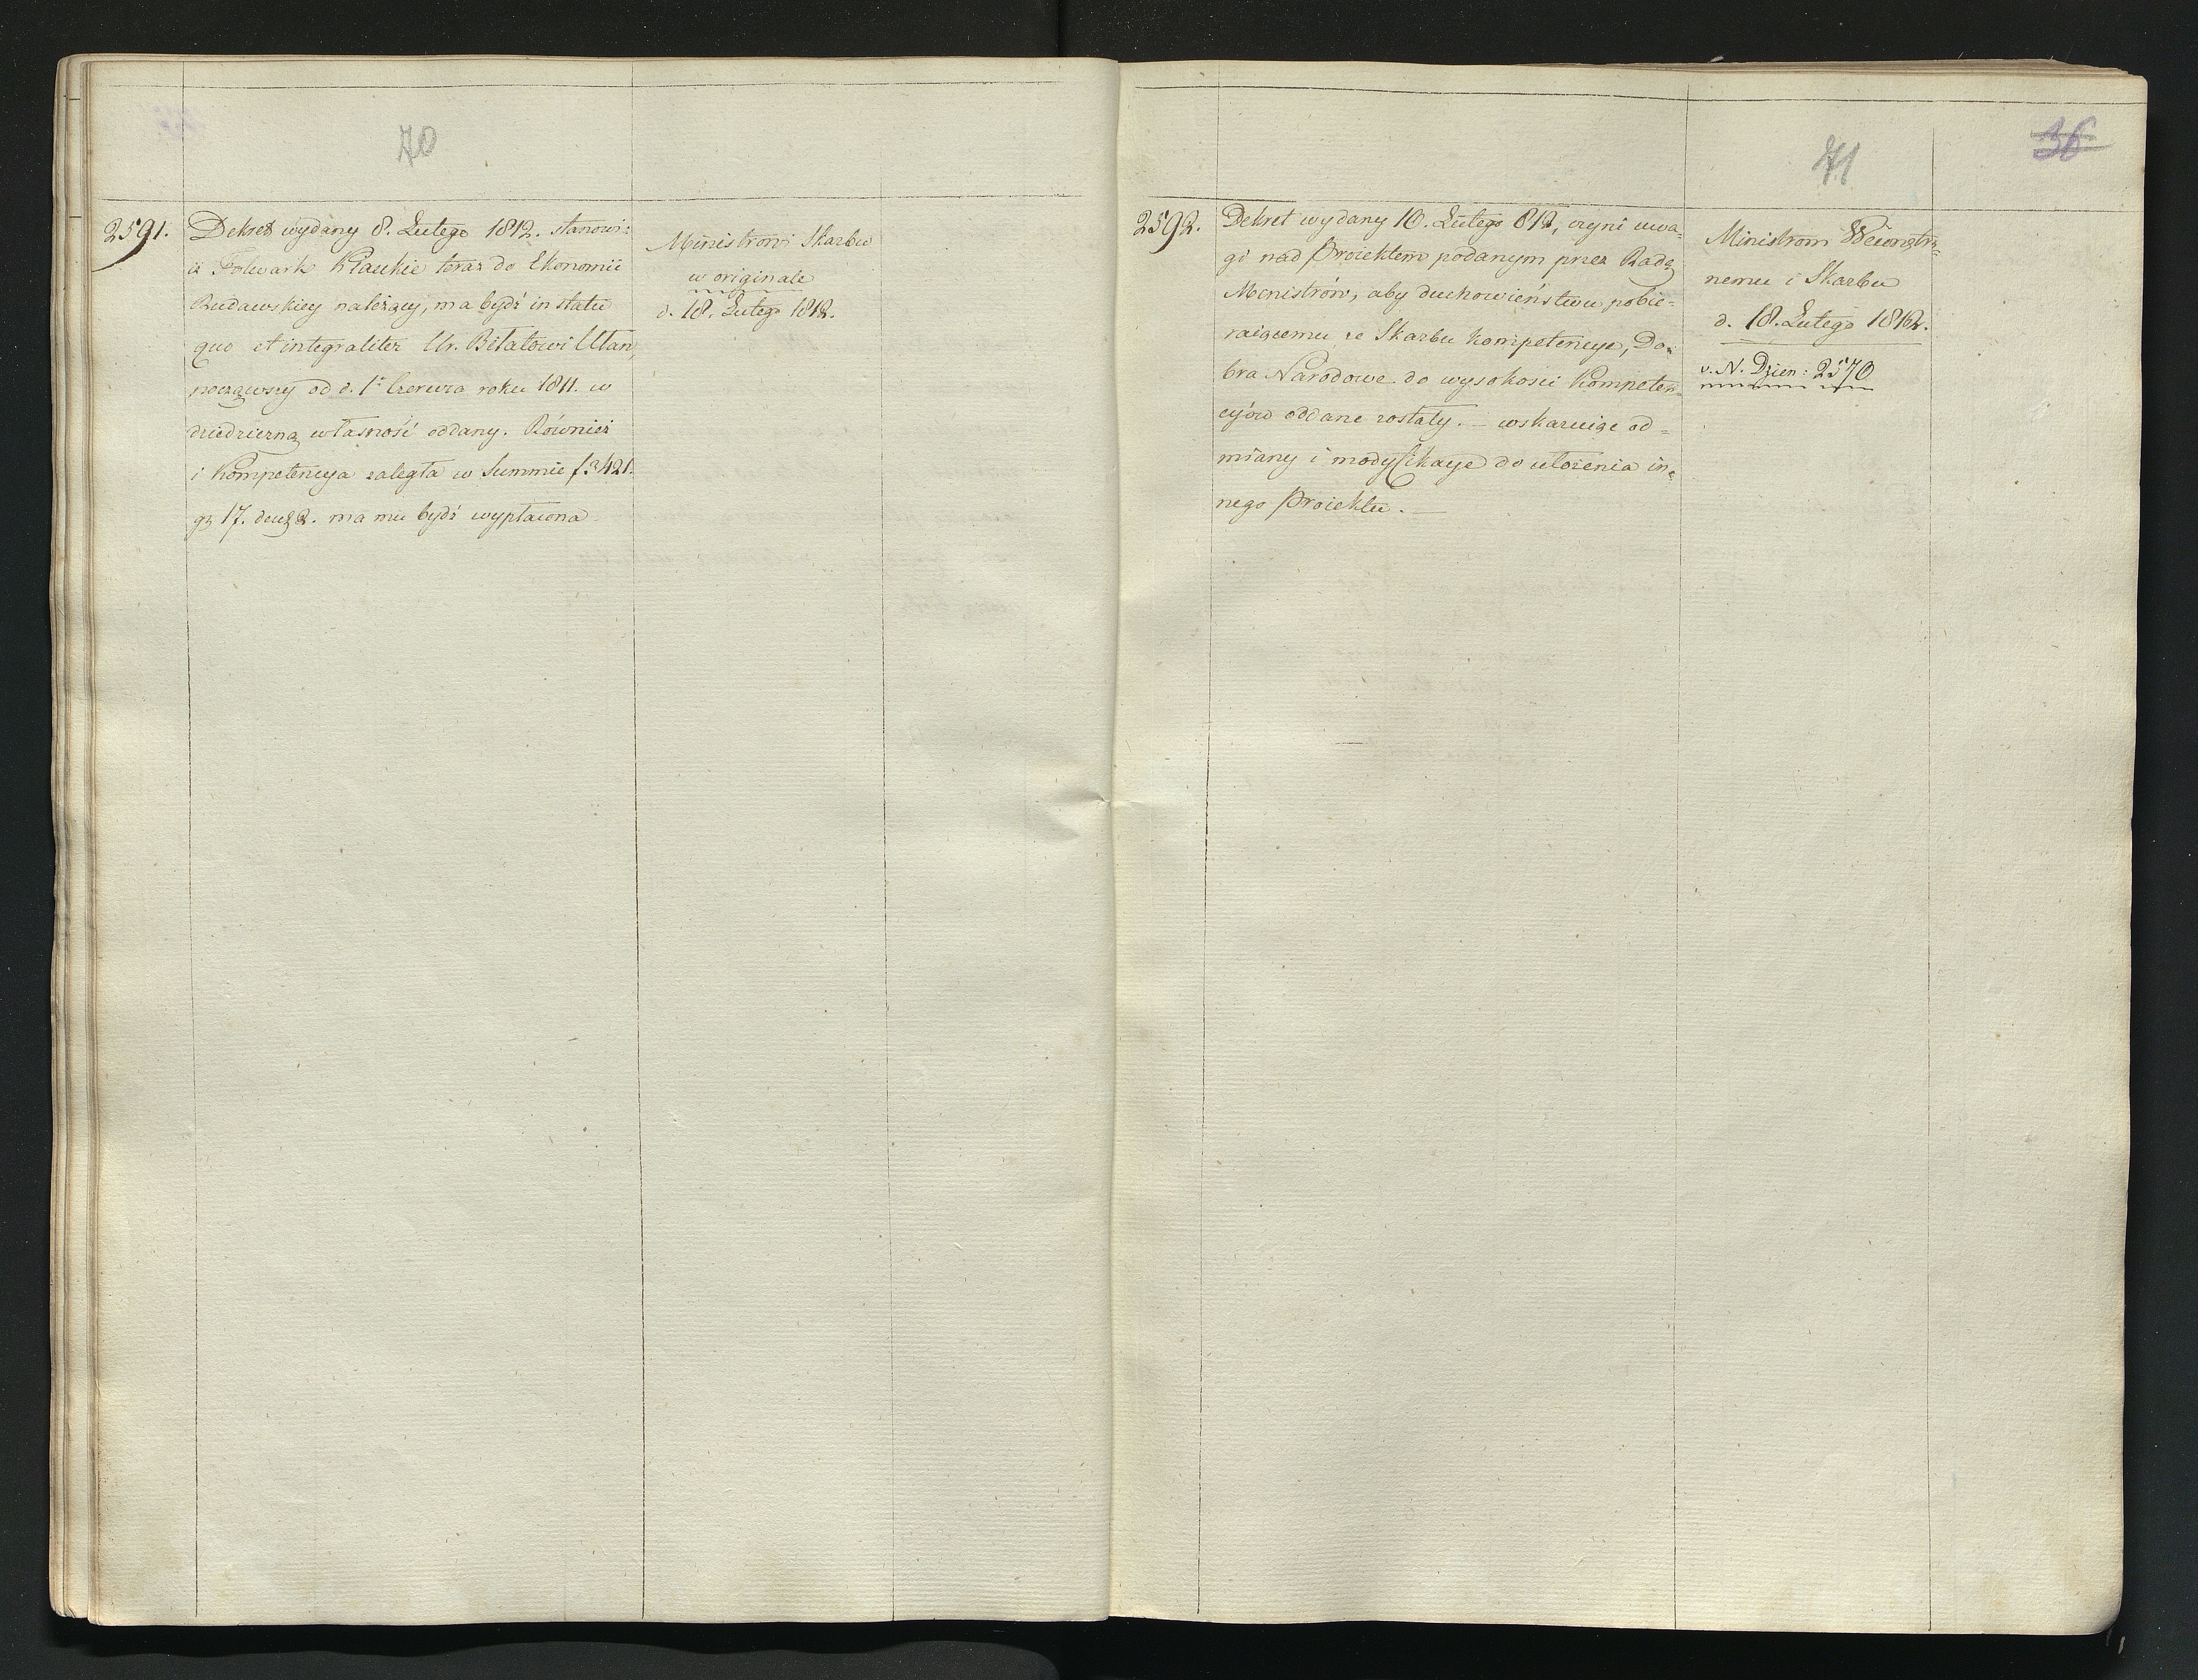 70
2591.
Dekret wydany 8. Lutego 1812. stanowi:
iż Folwark Klawkie teraz do Ekonomii
Rudawskiey należący, ma bydź in statu
quo et integraliter Ur. Bilatowi Ulan,
począwszy od d. 1. Czerwca roku 1811. w
dziedziczną własność oddany. Również
i Kompetencya zaległa w Summie f. 3421.
gr 17. ma mu bydź wypłacona
Ministrowi Skarbu
w originale
d. 18. Lutego 1812.
71
36
2592.
Dekret wydany 10. Lutego 812, czyni uwa-
gi nad Proiektem podanym przez Radę
Ministrów, aby duchowieństwu pobie-
raiącemu ze Skarbu kompetencye, Do-
bra Narodowe do wysokości Kompeten-
cyów oddane zostały. — wskazuiąc od=
miany i modyfikacye do ułożenia in-
nego Proiektu. —
Ministrom Wewnętrz-
nemu i Skarbu
d. 18. Lutego 1812.
v. N. Dzien: 2570